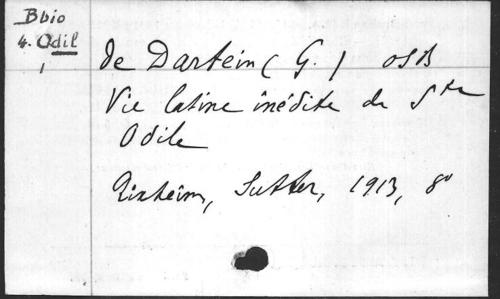 Bbio
4. Odil
1
de Dartein (G.) OSB
Vie latine inédite de Ste
Odile
Rixheim, Sutter, 1913, 8°